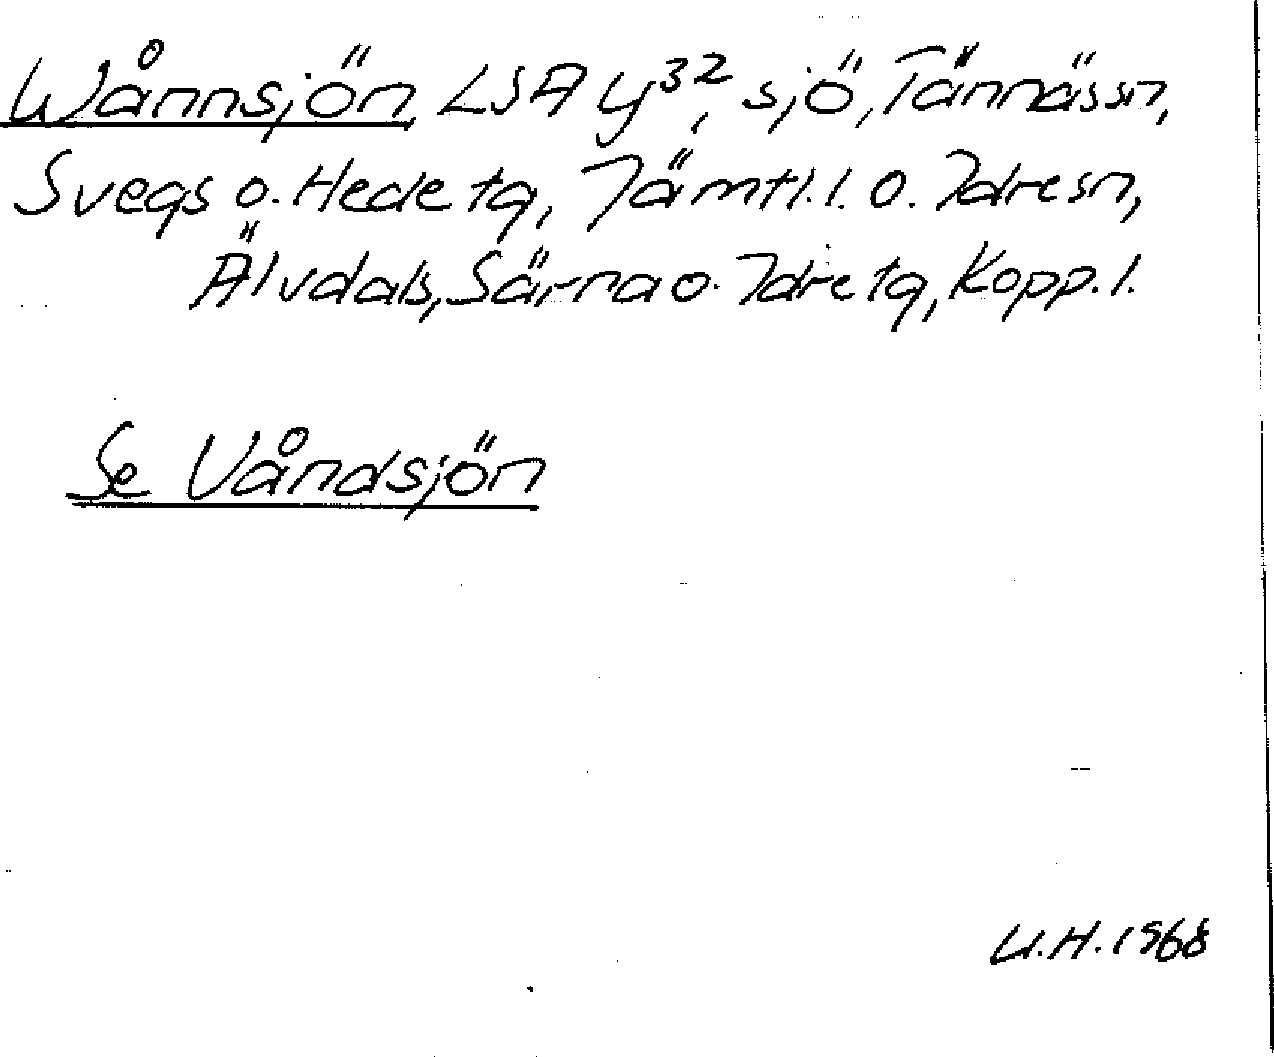 Wånnsjön, LSA y³², sjö, Tännäs sn,
Svegs o. Hede tg, Jämtl. l. o. Idre sn,
Älvdals, Särna o. Idre tg, Kopp. l.
Se Våndsjön
U.H. 1968